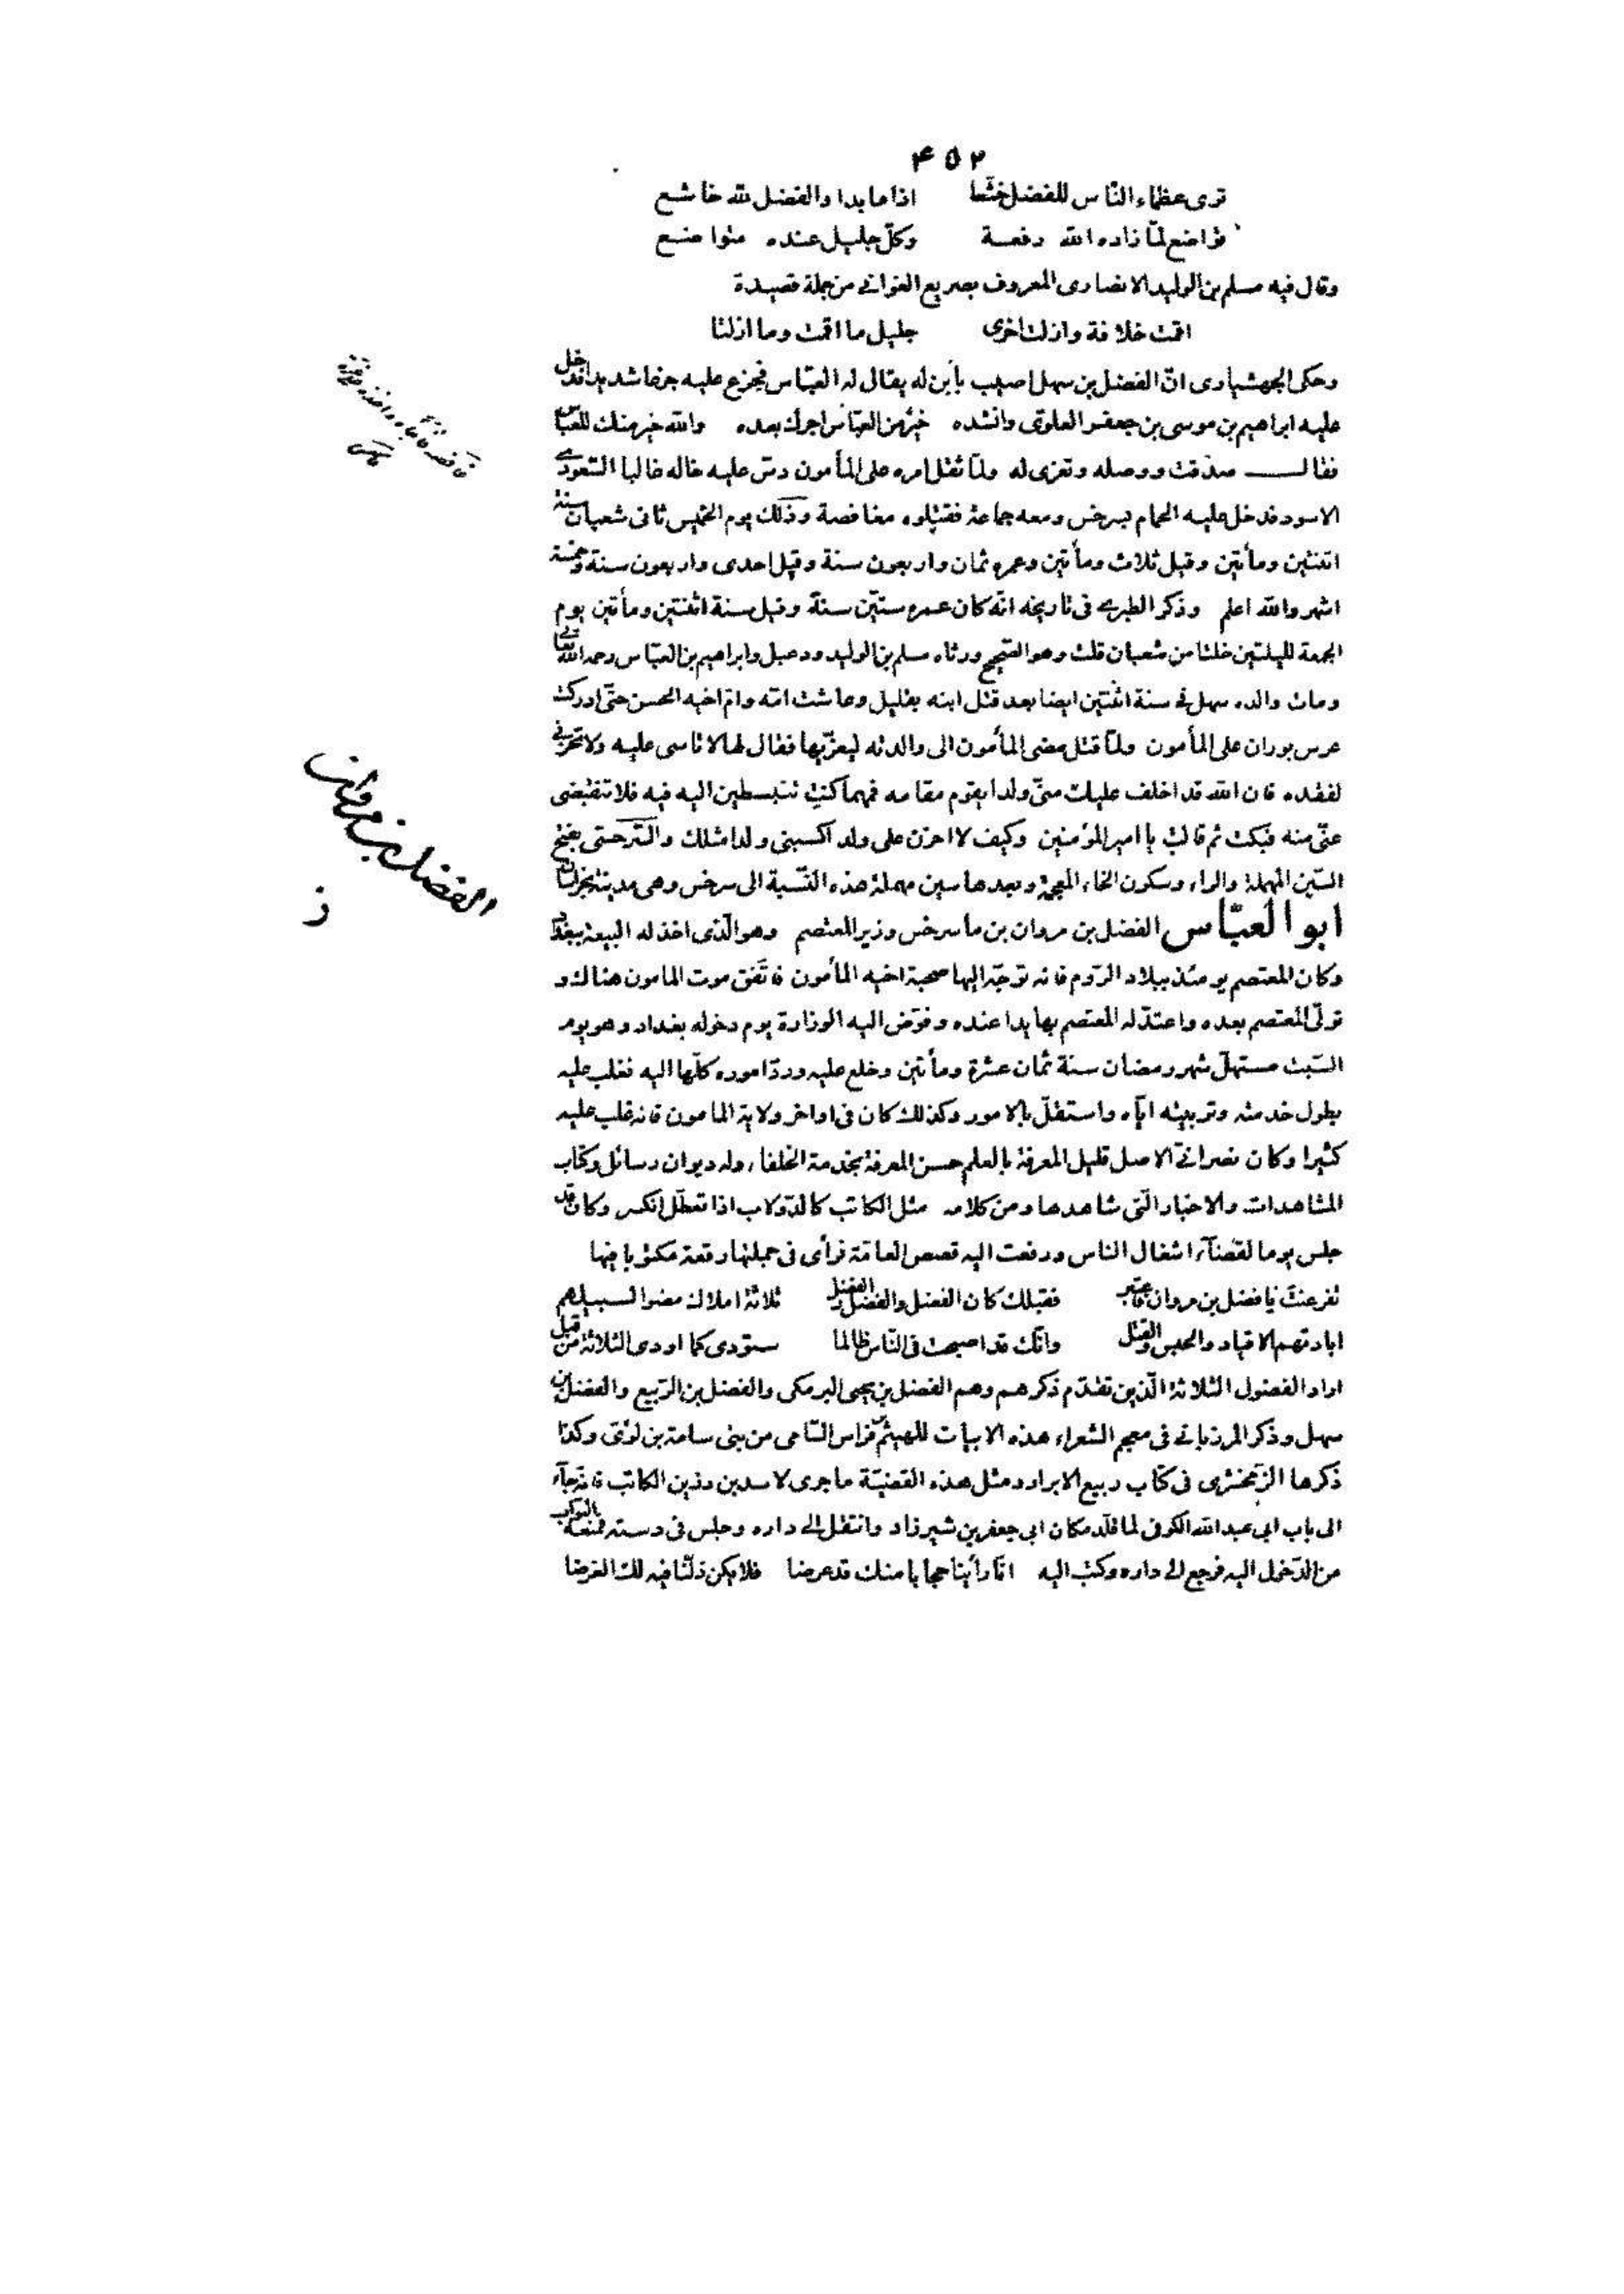 ۴۵۲
ترى عظماء النّاس للفضل خشّعا اذا ما بدا والفضل لله خاشع
تواضع لمّا زاده الله رفعة وكلّ جليل عنده متواضع
وقال فيه مسلم بن الوليد الانصارى المعروف بصريع الغوانى من جملة قصيدة
اقمت خلافة وازلت اخرى جليل ما اقمت وما ازلتا
وحكى الجهشيارى انّ الفضل بن سهل اصيب بأبن له يقال له العبّاس فجزع عليه جزعا شديدا فدخل
عليه ابراهيم بن موسى بن جعفر العلوى وانشده خير من العبّاس اجرك بعده والله خير منك للعبّاس
فقال صدقت ووصله وتعزى له ولمّا ثقل امره على المأمون دسّ عليه خاله غالبا السّعودى
الاسود فدخل عليه الحمام بسرخس ومعه جماعة فقتلوه مغافصة وذلك يوم الخميس ثانى شعبان سنة
اثنتين ومأتين وقيل ثلاث ومأتين وعمره ثمان واربعون سنة وقيل احدى واربعون سنة وخمسة
اشهر والله اعلم وذكر الطبرى فى تاريخه انّه كان عمره ستّين سنة وقيل سنة اثنتين ومأتين يوم
الجمعة لليلتين خلتا من شعبان قلت وهو الصّحيح ورثاه مسلم بن الوليد ودعبل وابراهيم بن العبّاس رحمه الله تعالى
ومات والده سهل فى سنة اثنتين ايضا بعد قتل ابنه بقليل وعاشت امّه وامّ اخيه الحسن حتّى ادركت
عرس بوران على المأمون ولمّا قتل مضى المأمون الى والدته ليعزّيها فقال لها لا تاسى عليه ولا تحزنى
لفقده فان الله قد اخلف عليك منّى ولدا يقوم مقامه فمهما كنت تنبسطين اليه فيه فلا تنقبضى
عنّى منه فبكت ثم قالت يا امير المؤمنين وكيف لا احزن على ولد اكسبنى ولدا مثلك والسّرخسى بفتح
السّين المهملة والراء وسكون الخاء المعجمة وبعدها سين مهملة هذه النّسبة الى سرخس وهى مدينة بخراسان
ابو العبّاس الفضل بن مروان بن ماسرخس وزير المعتصم وهو الّذى اخذ له البيعة ببغداد
وكان المعتصم يومئذ ببلاد الرّوم فانه توجّه اليها صحبة اخيه المأمون فاتّفق موت المامون هناك و
تولّى المعتصم بعده واعتدّ له المعتصم بها يدا عنده وفوّض اليه الوزارة يوم دخوله بغداد وهو يوم
السّبت مستهلّ شهر رمضان سنة ثمان عشرة ومأتين وخلع عليه وردّ اموره كلّها اليه فغلب عليه
بطول خدمته وتربيته ايّاه واستقلّ بالامور وكذلك كان فى اواخر ولاية المامون فانه غلب عليه
كثيرا وكان نصرانىّ الاصل قليل المعرفة بالعلم حسن المعرفة بخدمة الخلفاء وله ديوان رسائل وكتاب
المشاهدات والاخبار الّتى شاهدها ومن كلامه مثل الكاتب كالدّولاب اذا تعطّل انكسر وكان قد
جلس يوما لقضآء اشغال الناس ورفعت اليه قصص العامّة فرأى فى جملتها رقعة مكتوبا فيها
تفرعنت يا فضل بن مروان فاعتبر فقبلك كان الفضل والفضل والفضل ثلاثة املاك مضوا لسبيلهم
ابادتهم الاقياد والحبس والقتل وانّك قد اصبحت فى النّاس ظالما ستودى كما اودى الثلاثة من قبل
اراد الفضول الثلاثة الّذين تقدّم ذكرهم وهم الفضل بن يحيى البرمكى والفضل بن الرّبيع والفضل بن
سهل وذكر المرزبانى فى معجم الشعراء هذه الابيات للهيثم بن فراس السّامى من بنى سامة بن لؤى وكذا
ذكرها الزّمخشرى فى كتاب ربيع الابرار ومثل هذه القضيّة ما جرى لاسد بن رزين الكاتب فانّه جآء
الى باب ابى عبد الله الكوفى لما قلّد مكان ابى جعفر بن شيرزاد وانتقل الى داره وجلس فى دسته فمنعه البوّاب
من الدّخول اليه فرجع الى داره وكتب اليه انّا رأينا حجابا منك قد عرضا فلا يكن ذلّنا فيه لك الغرضا
الفضل بن مروان